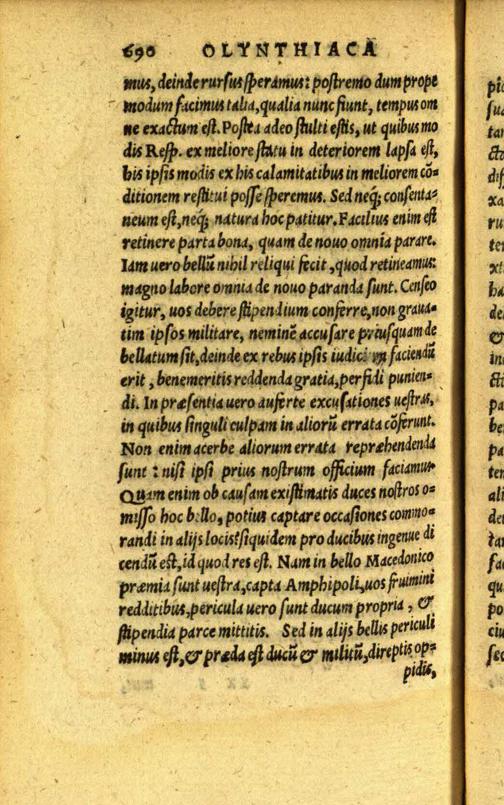 690 OLYNTHIACA
mus, deinde rursus speramus: postremo dum prope
modum facimus talia, qualia nunc fiunt, tempus om
ne exactum est. Postea adeo stulti estis, ut quibus mo
dis Resp. ex meliore statu in deteriorem lapsa est,
his ipsis modis ex his calamitatibus in meliorem cõ-
ditionem restitui posse speremus. Sed neq; consenta-
neum est, neq; natura hoc patitur. Facilius enim est
retinere parta bona, quam de nouo omnia parare.
Iam uero bellũ nihil reliqui fecit, quod retineamus:
magno labore omnia de nouo paranda sunt. Censeo
igitur, uos debere stipendium conferre, non graua-
tim ipsos militare, neminẽ accusare priusquam de
bellatum sit, deinde ex rebus ipsis faciendũ
erit, benemeritis reddenda gratia, perfidi punien-
di. In præsentia uero auferte excusationes uestras,
in quibus singuli culpam in aliorũ errata cõferunt.
Non enim acerbe aliorum errata repræhendenda
sunt: nisi ipsi prius nostrum officium faciamus.
Quam enim ob causam existimatis duces nostros o-
misso hoc bello, potius captare occasiones commo-
randi in alijs locis? siquidem pro ducibus ingenue di
cendũ est, id quod res est. Nam in bello Macedonico
præmia sunt uestra, capta Amphipoli, uos fruimini
redditibus, pericula uero sunt ducum propria, &
stipendia parce mittitis. Sed in alijs bellis periculi
minus est, & præda est ducũ & militũ, direptis op-
pidis,